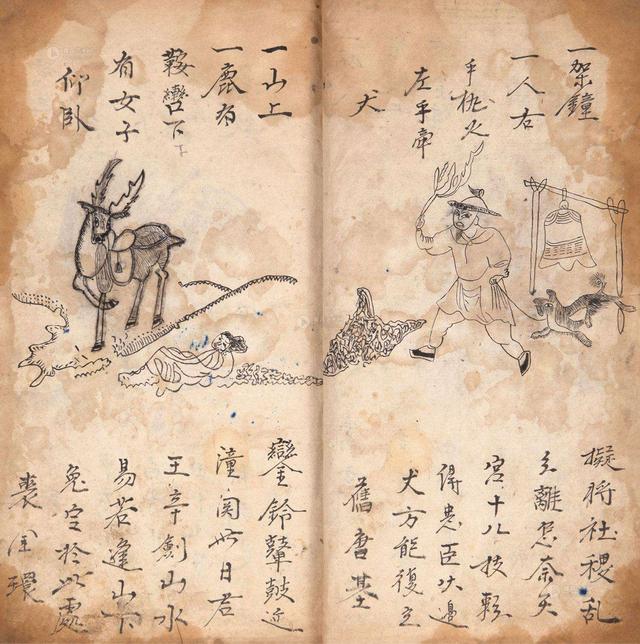 一架鐘
一人右
手挑火
左手牽
犬
擬將社稷亂
離怎奈天
宮十八枝
得忠臣伏邊
犬方能復立
舊唐基
一山上
一鹿有
鞍轡下
有女子
仰臥
鑾鈴鼙鼓近
潼関此日君
王幸劍山水
易若逢山下
鬼定於此處
喪金環